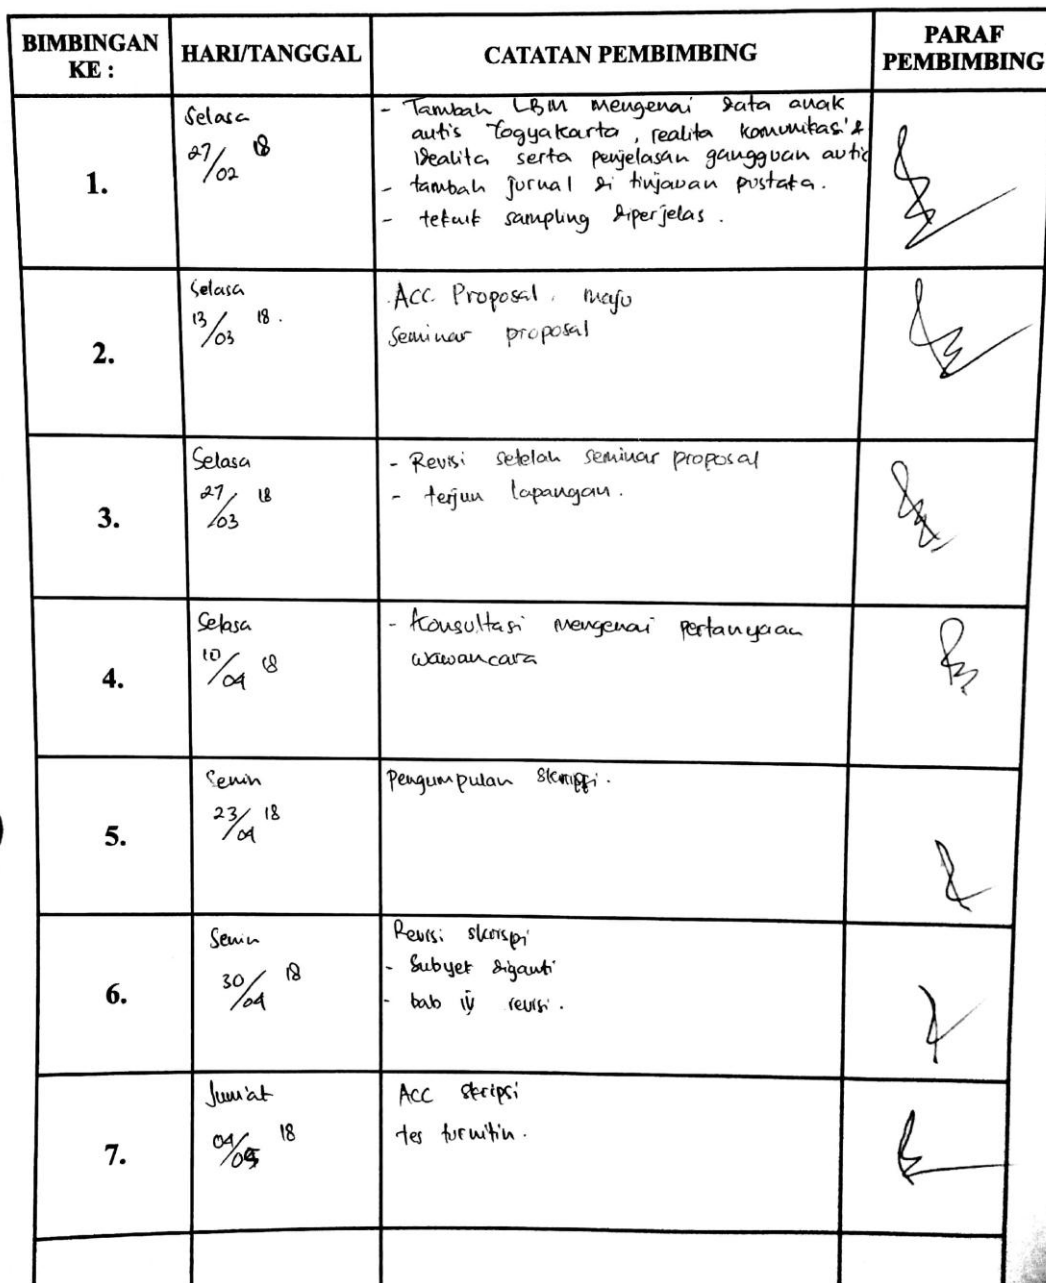 BIMBINGAN KE : HARI/TANGGAL CATATAN PEMBIMBING PARAF PEMBIMBING
1.
Selasa
27/02 18
- Tambah LBM mengenai data anak
autis Yogyakarta, realita komunikasi &
idealita serta penjelasan gangguan autis
- tambah jurnal di tinjauan pustaka.
- teknik sampling diperjelas.
2.
Selasa
13/03 18.
Acc. Proposal. maju
Seminar proposal
3.
Selasa
27/03 18
- Revisi setelah seminar proposal
- terjun lapangan.
4.
Selasa
10/04 18
- Konsultasi mengenai pertanyaan
wawancara
5.
Senin
23/04 18
Pengumpulan skripsi.
6.
Senin
30/04 18
Revisi skrispi
- Subyek diganti
- bab iv revisi.
7.
Jum'at
04/05 18
ACC skripsi
tes turnitin.